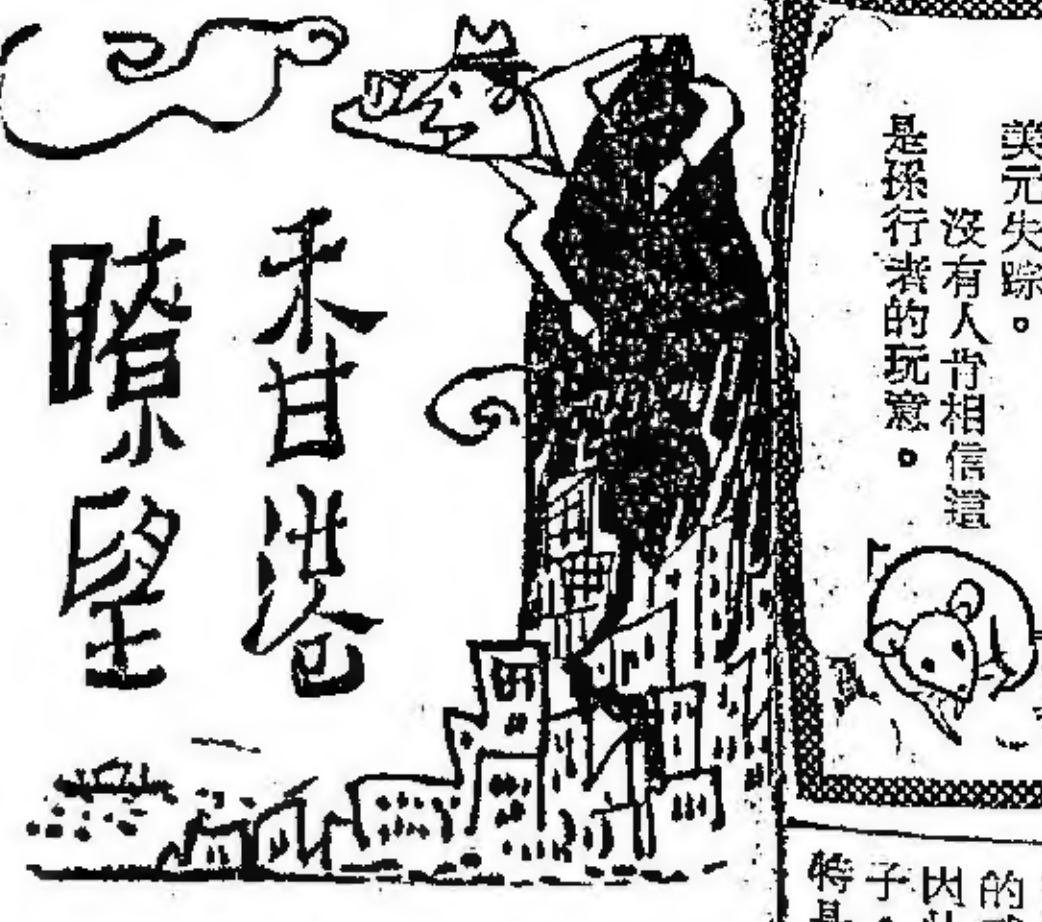 香港
瞭望
美元失踪。
沒有人肯相信這
是孫行者的玩意。
的
因
子
特